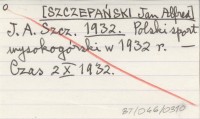 [SZCZEPAŃSKI Jan Alfred]
J. A. Szcz. 1932. Polski sport
wysokogórski w 1932 r. —
Czas 2 X 1932.